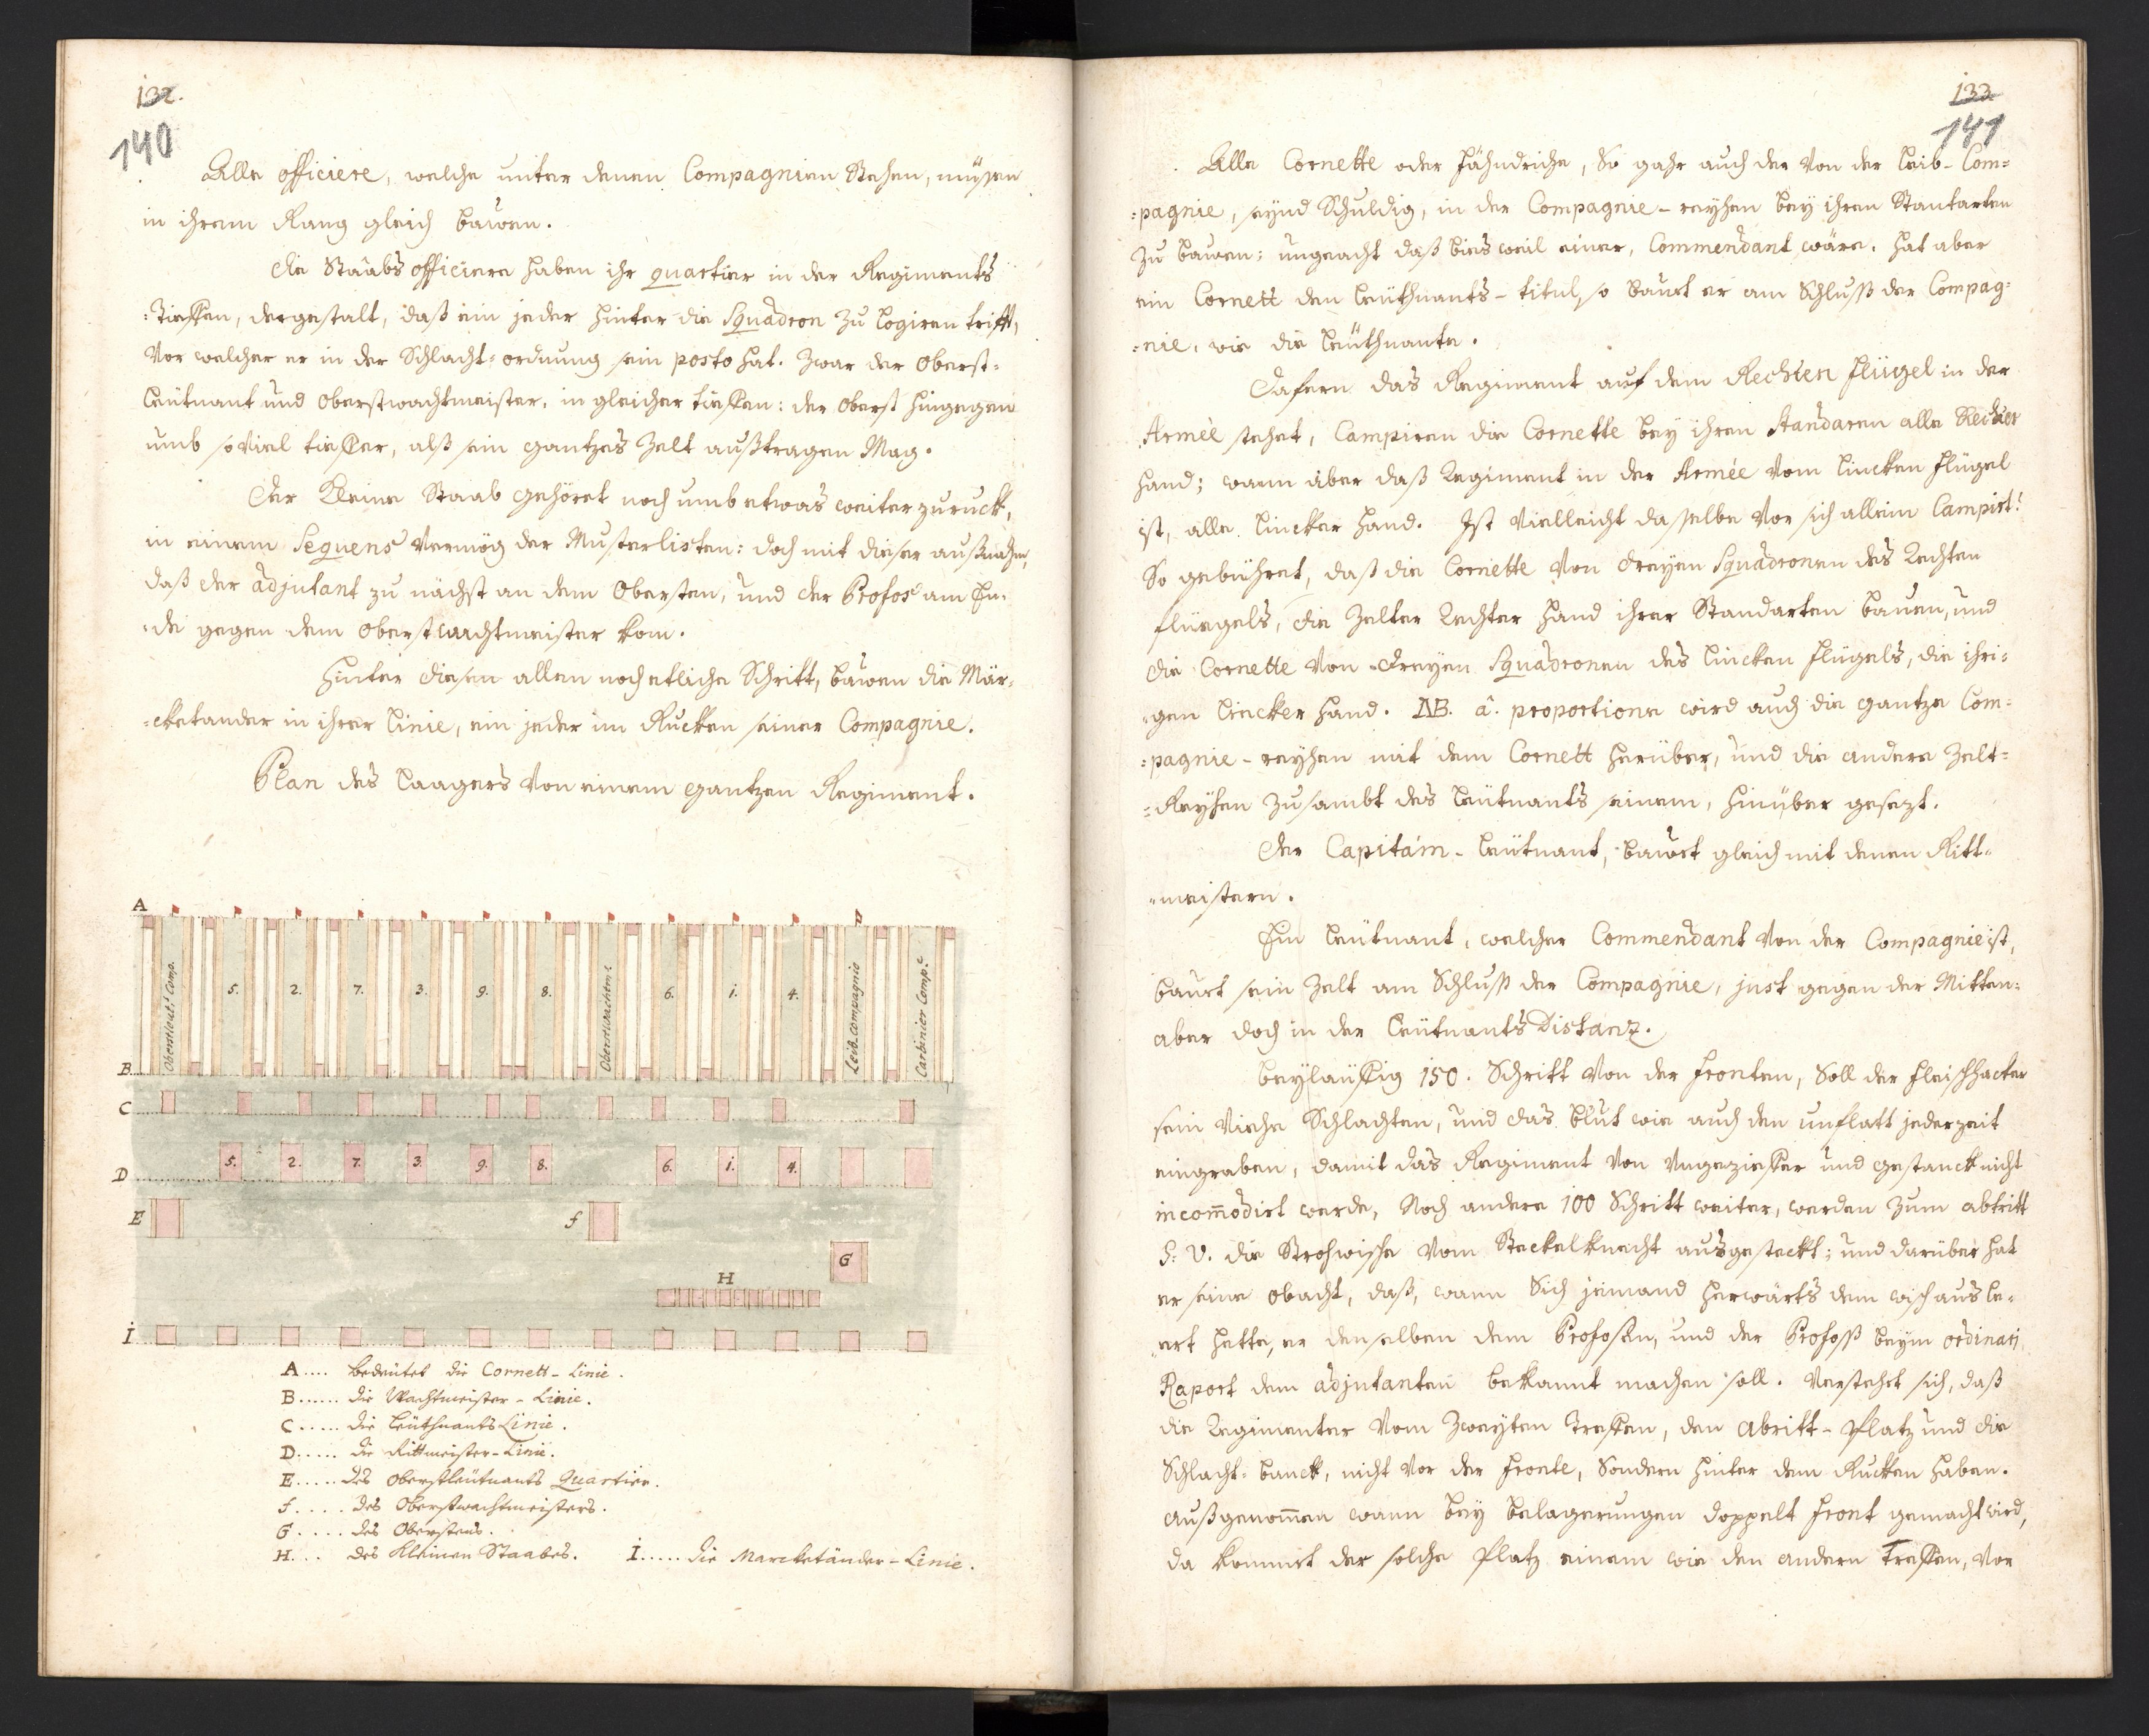 132.
140
Alle officiere, welche unter denen Compagnien Stehen, müssen
in ihrem Rang gleich bawen.
Die Staabs officiere haben ihr quartier in der Regiments
=Tieffen, dergestalt, daß ein jeder hinter die Squadron zu logiren trifft,
Vor welcher er in der Schlacht-ordnung sein posto hat. Zwar der Oberst-
leütnant und Oberstwachtmeister, in gleicher tieffen: der Oberst hingegen
umb so viel tieffer, alß sein gantzes Zelt außtragen Mag.
Der Kleine Staab gehöret noch umb etwas weiter zuruck,
in einem Sequens vermög der Musterlisten: doch mit dieser außnahm,
daß der adjutant zu nächst an dem Obersten, und der Profos am En-
=de gegen dem Oberstwachtmeister kom.
Hinter diesen allen noch etliche Schritt, bawen die Mär-
=cketander in ihrer Linie, ein jeder im Rucken seiner Compagnie.
Plan des Laagers Von einem gantzen Regiment.
A
Oberstleut. Comp.
5.
2.
7.
3.
9.
8.
Oberstwachtm.
6.
1.
4.
Leib-compagnie
Carbinier Comp.
B
C
D
5.
2.
7.
3.
9.
8.
6.
1.
4.
E
f
G
H
I
A.... bedeütet die Cornett-Linie.
B...... die Wachtmeister-Linie.
C..... die Leüthnants Linie.
D..... die Rittmeister-Linie.
E..... des Oberstleütnants Quartier.
f.... des Oberstwachtmeisters.
G..... des Obersten.
H... des Kleinen Staabes. I..... die Marcketänder-Linie.
133
141
Alle Cornette oder fähndriche, So gahr auch der Von der Leib-Com=
=pagnie, seynd Schuldig, in der Compagnie-reyhen bey ihren Stantarten
zu bawen: ungeacht daß bisweil einer, Commendant wäre. hat aber
ein Cornett den Leüthnants-titul, so bauet er am Schluß der Compag=
=nie, wie die Leüthnante.
Dafern das Regiment auf dem Rechten flügel in der
Armèe stehet, Campiren die Cornette bey ihren Standaren alle Rechter
hand; wann aber daß Regiment in der Armèe Vom lincken flügel
ist, alle lincker hand. Ist Vielleicht daselbe Vor sich allein Campirt!
So gebühret, daß die Cornette Von dreyen Squadronen des Rechten
flüegels, die Zelter Rechter hand ihrer Standarten bauen, und
die Cornette Von dreyen Squadronen des lincken flügels, die ihri=
=gen lincker hand. NB. â. proportione wird auch die gantze Com=
=pagnie-reyhen mit dem Cornett herüber, und die andere Zelt=
=Reyhen zusambt des Leütnants seinem, hinüber gesezt.
Der Capitain-Leütnant, bauet gleich mit denen Ritt=
=meistern.
Ein Leütnant, welcher Commendant Von der Compagnie ist,
bauet sein Zelt am Schluß der Compagnie, just gegen der Mitten:
aber doch in der Leütnants Distanz.
Beyläuffig 150. Schritt Von der fronten, Soll der fleischhacker
sein Viehe Schlachten, und das blut wie auch den unflatt jederzeit
eingraben, damit das Regiment Von Ungezieffer und gestanck nicht
incom̄odirt werde, Noch andere 100 Schritt weiter, werden zum abtritt
S: V. die Strohwische Vom Steckelknecht ausgesteckt; und darüber hat
er seine obacht, daß, wann Sich jemand herwärts dem wisch ausle-
=ert hette, er denselben dem Profosen, und der Profoß beym ordinari
Raport dem adjutanten bekannt machen soll. Verstehet sich, daß
die Regimenter Vom Zweyten Treffen, den Abritt-Platz und die
Schlacht-banck, nicht vor der fronte, Sondern hinter dem Rucken haben.
außgenom̄en wann bey belagerungen doppelt front gemacht wird,
da kommet der solche Platz einem wie den andern Treffen, Vor